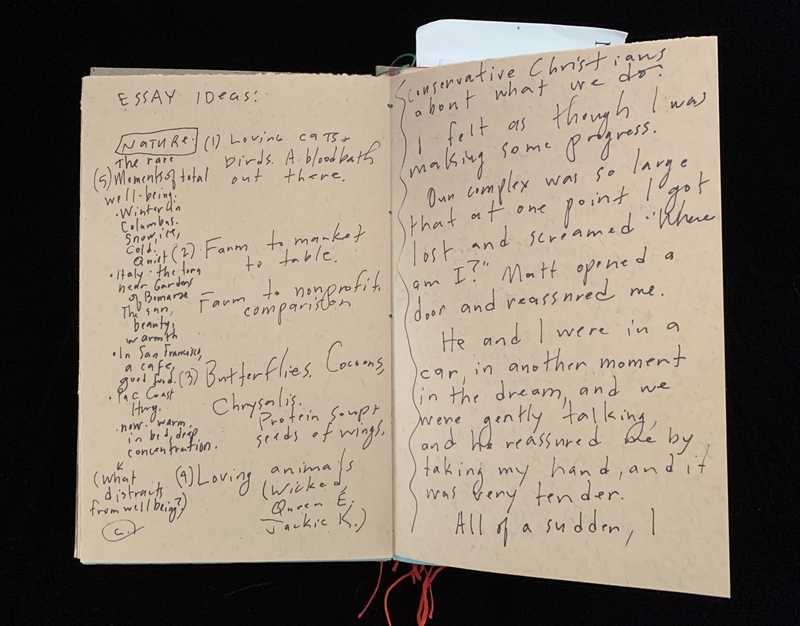 ESSAY IDEAS:
NATURE.
(1) Loving cats +
birds. A bloodbath
out there.
(2) Farm to market
to table.
Farm to nonprofit
comparison
(3) Butterflies. Cocoons,
Chrysalis.
Protein soup +
seeds of wings.
(4) Loving animals
(Wicked,
Queen E;
Jackie K.)
The rare
(5) Moments of total
well-being:
• Winter in
Columbus.
Snow, ice,
cold.
Quiet
• Italy - the
near Gardens
of Bomarzo
The sun,
beauty,
warmth
• In San Francisco,
a cafe,
good food.
• Pac Coast
Hwy.
• now - warm
in bed, deep
concentration.
(what
distracts
from well being?)
conservative Christians
about what we do.
I felt as though I was
making some progress.
Our complex was so large
that at one point I got
lost and screamed "Where
am I?" Matt opened a
door and reassured me.
He and I were in a
car, in another moment
in the dream, and we
were gently talking,
and he reassured me by
taking my hand, and it
was very tender.
All of a sudden, I